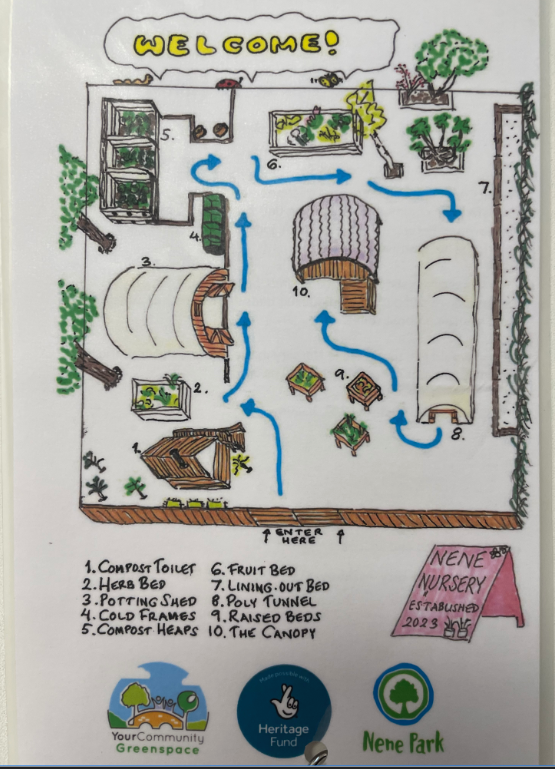 WELCOME!
5.
6.
7.
4.
3.
10.
2.
9.
1.
8.
ENTER
HERE
1. COMPOST TOILET
2. HERB BED
3. POTTING SHED
4. COLD FRAMES
5. COMPOST HEAPS
6. FRUIT BED
7. LINING-OUT BED
8. POLY TUNNEL
9. RAISED BEDS
10. THE CANOPY
NENE
NURSERY
ESTABLISHED
2023
YourCommunity
Greenspace
Made possible with
Heritage
Fund
Nene Park